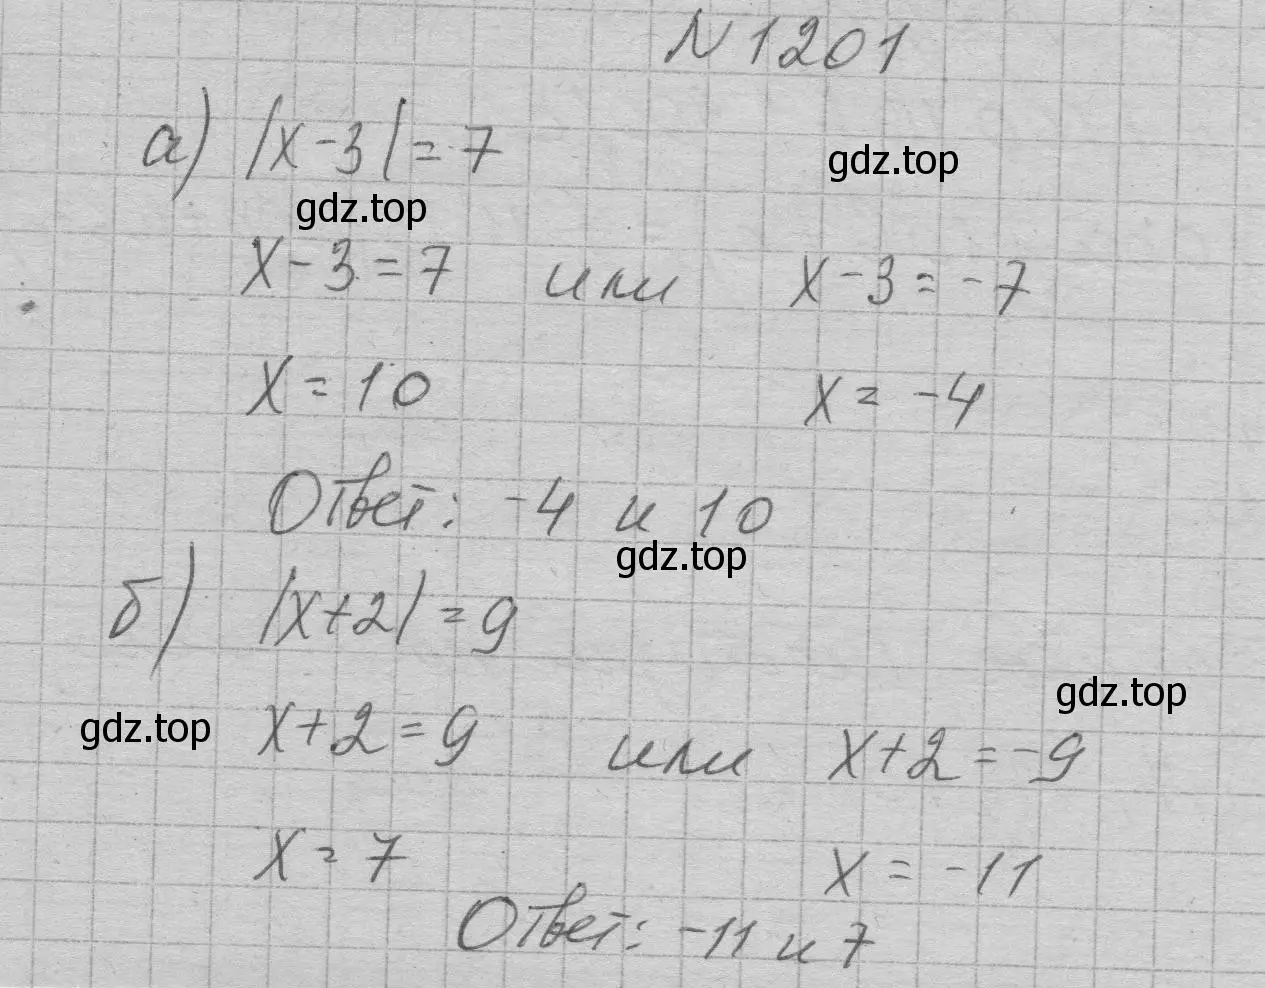 N 1201
а) |x-3|=7
gdz.top
gdz.top
x-3=7 или x-3=-7
x=10 x=-4
Ответ: -4 и 10
gdz.top
б) |x+2|=9
gdz.top
gdz.top
x+2=9 или x+2=-9
x=7 x=-11
Ответ: -11 и 7